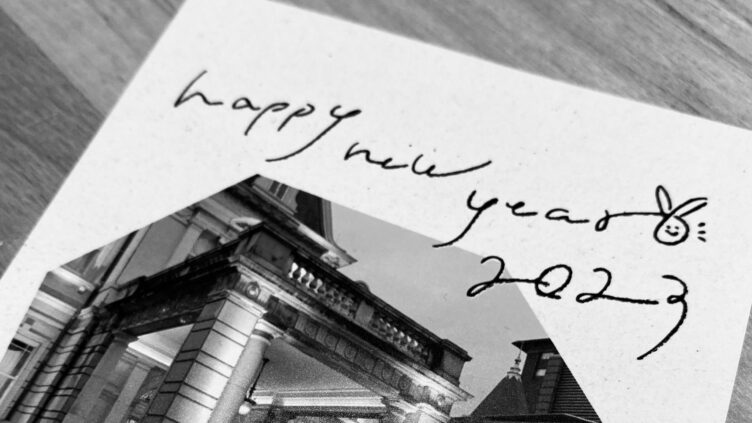 happy
new
year
2023